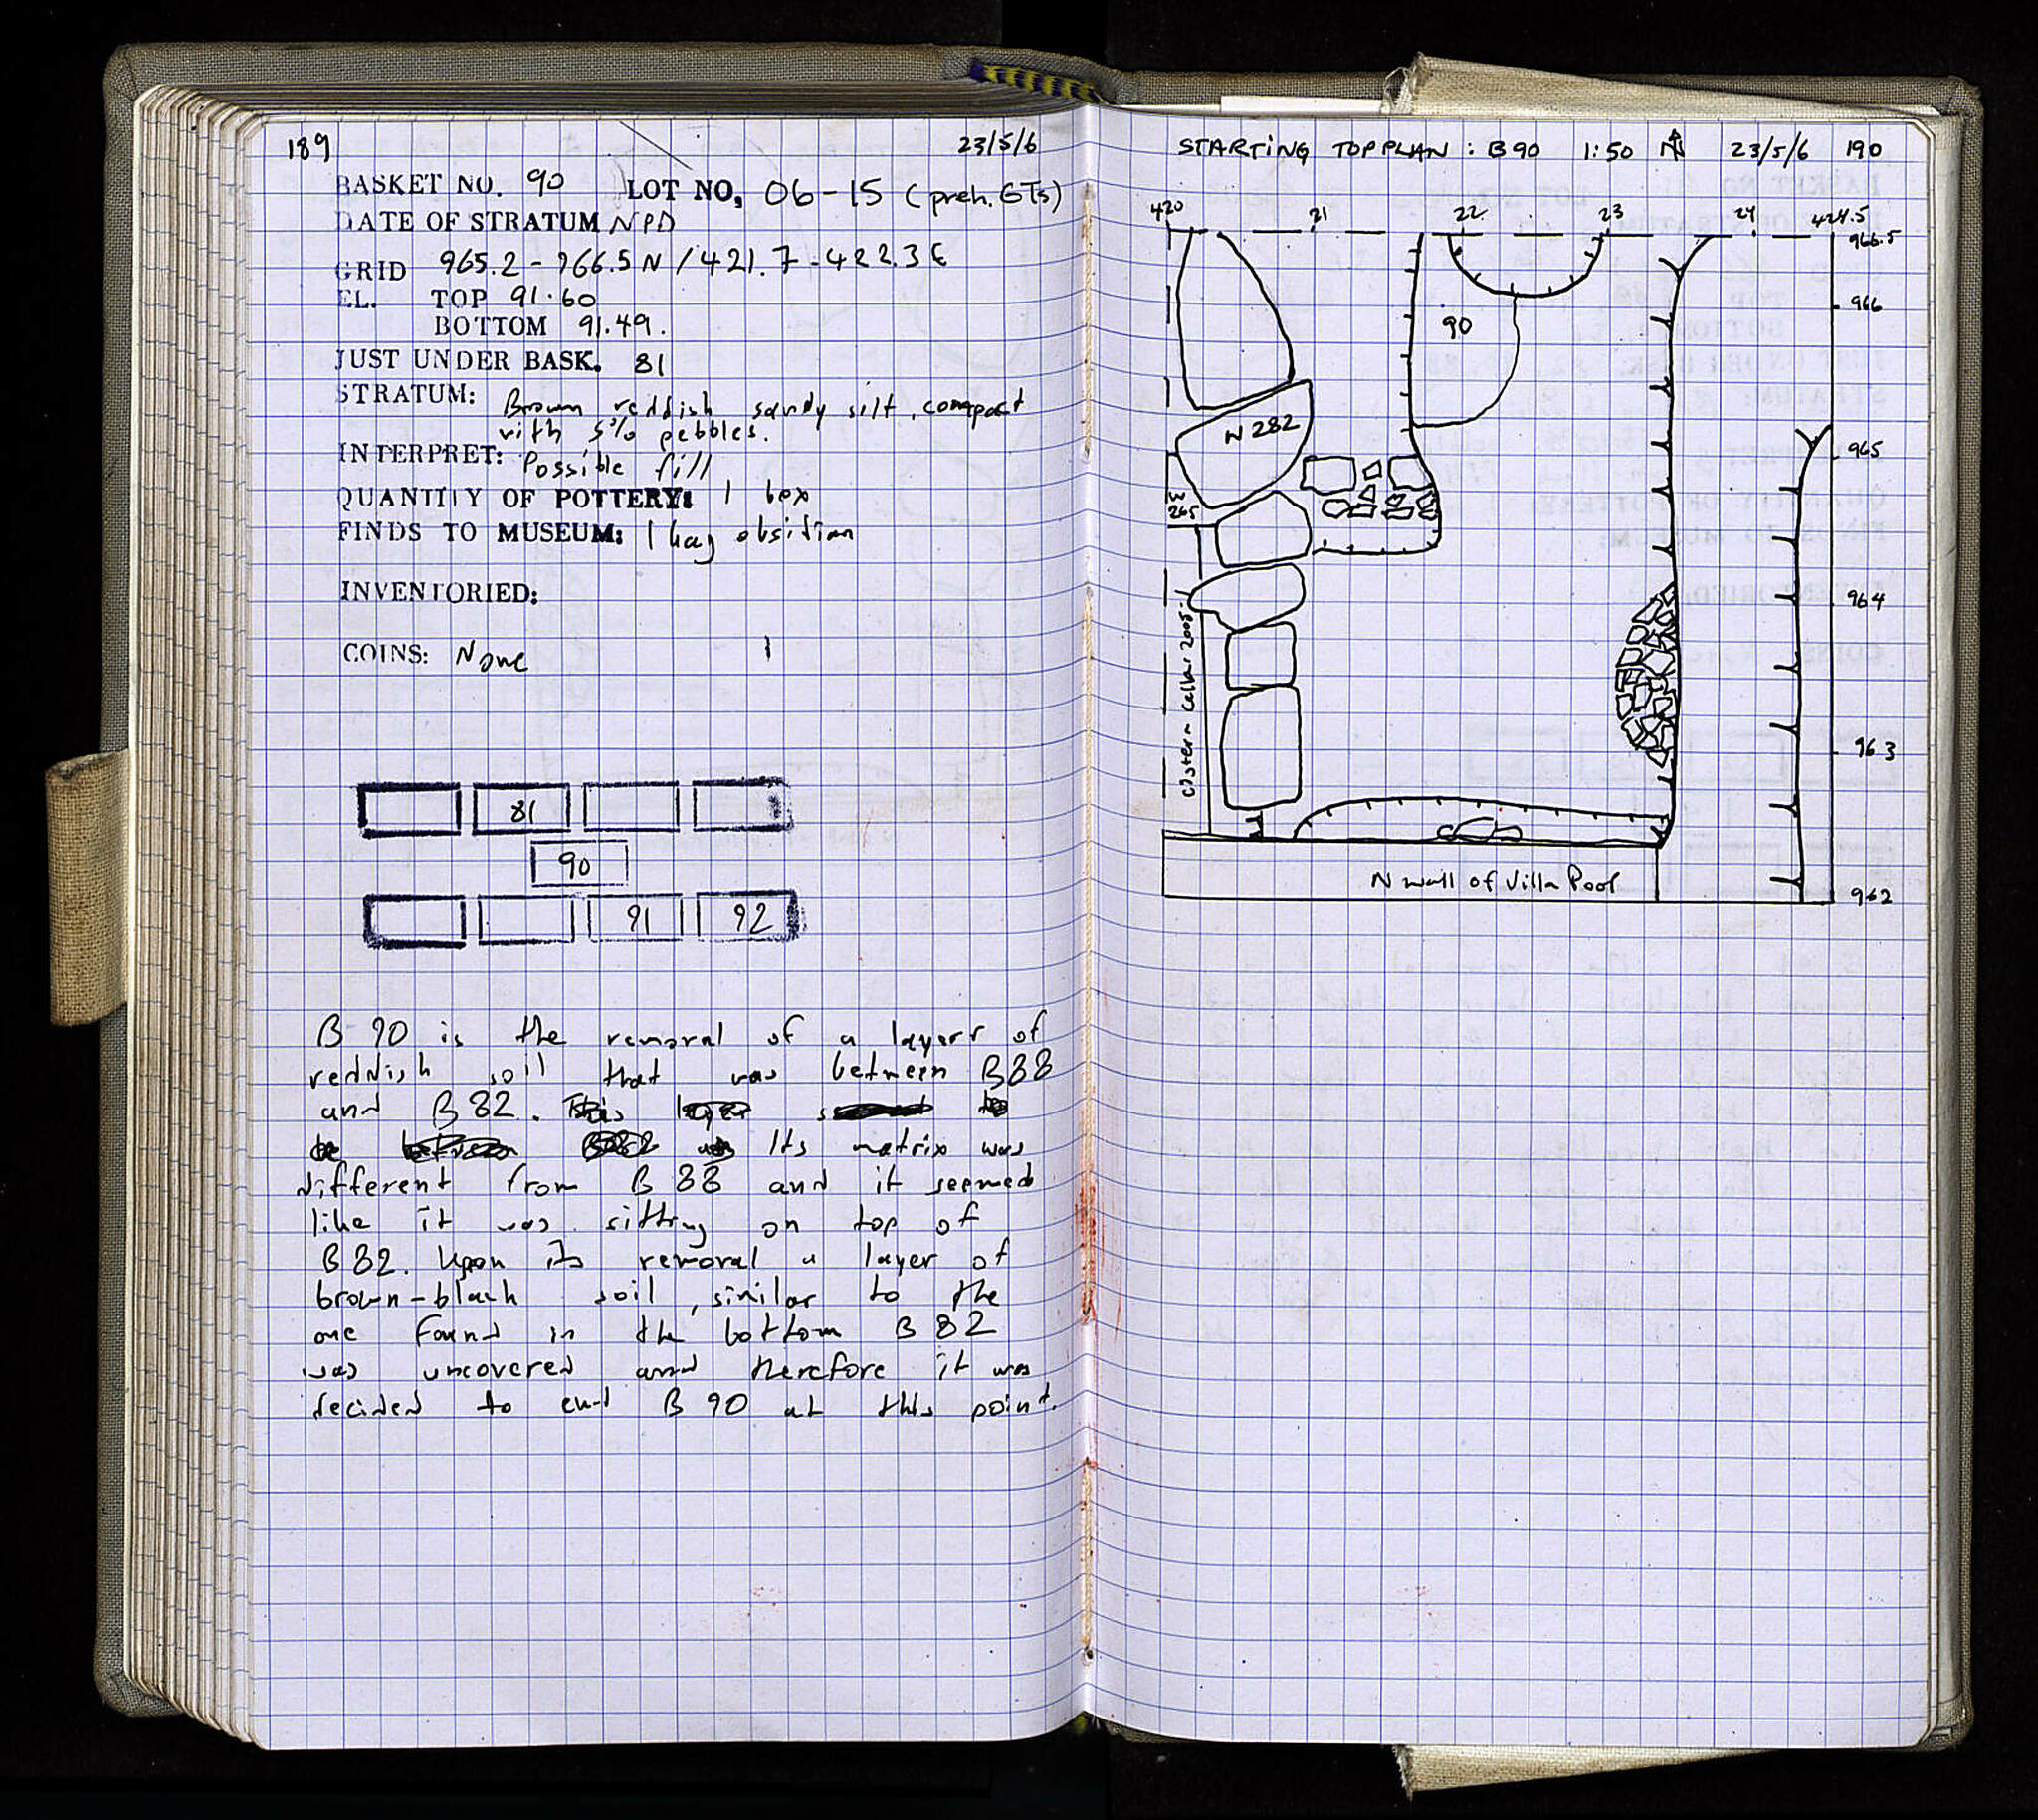 189
23/5/6
BASKET NO. 90 LOT NO, 06-15 (preh. GTs)
DATE OF STRATUM NPD
GRID 965.2-966.5N/421.7-422.3E
EL. TOP 91.60
BOTTOM 91.49.
JUST UNDER BASK. 81
STRATUM: Brown reddish sandy silt, compact
with 5% pebbles.
INTERPRET: Possible fill
QUANTITY OF POTTERY: 1 box
FINDS TO MUSEUM: 1 bag obsidian
INVENTORIED:
COINS: None
81
90
91 92
B 90 is the removal of a layer of
reddish soil that was between B88
and B 82. This layer
Its matrix was
different from B 88 and it seemed
like it was sitting on top of
B 82. Upon its removal a layer of
brown-black soil, similar to the
one found in the bottom B 82
was uncovered and therefore it was
decided to end B 90 at this point.
STARTING TOP PLAN : B 90 1:50 N 23/5/6 190
420 21 22 23 24 424.5
966.5
966
90
W 282
965
W
265
964
Cistern Cellar 2005-1
963
N wall of Villa Pool
962